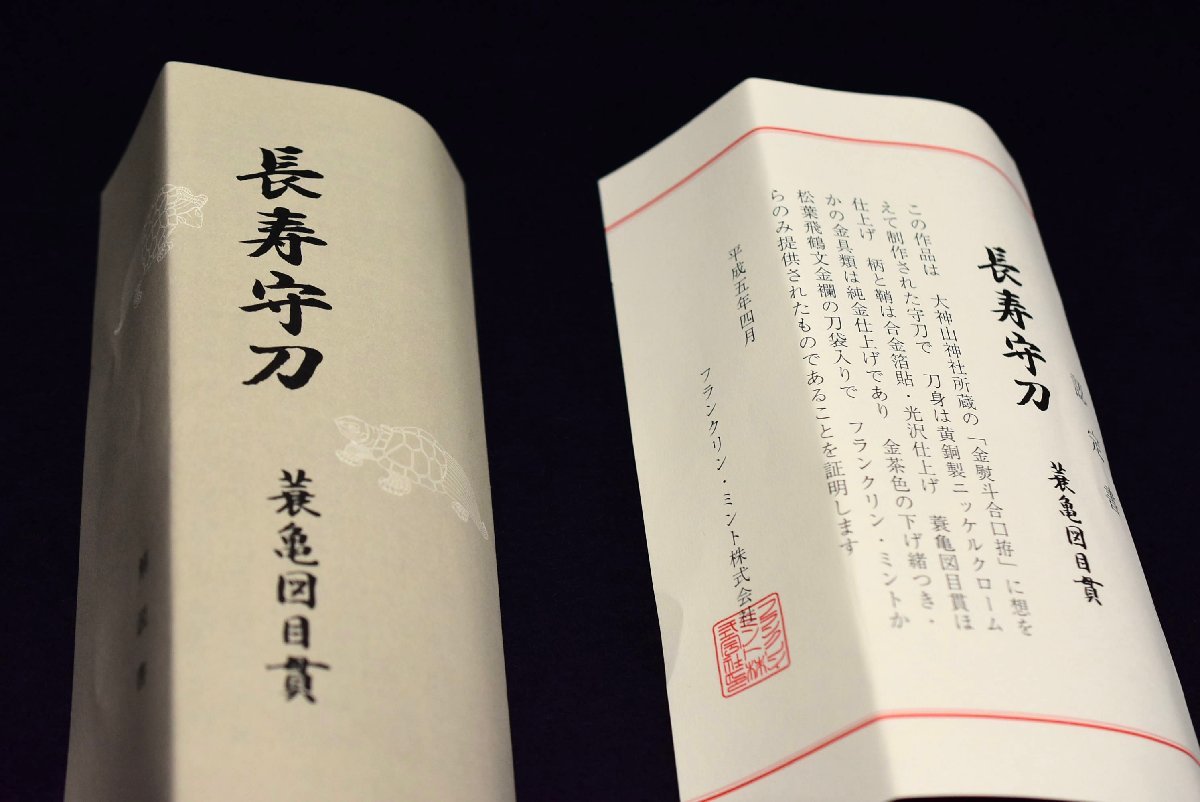 長寿守刀
蓑亀図目貫
長寿守刀
蓑亀図目貫
この作品は 大神山神社所蔵の「金熨斗合口拵」に想を
えて制作された守刀で 刀身は黄銅製ニッケルクローム
仕上げ 柄と鞘は合金箔貼・光沢仕上げ 蓑亀図目貫ほ
かの金具類は純金仕上げであり 金茶色の下げ緒つき・
松葉飛鶴文金襴の刀袋入りで フランクリン・ミントか
らのみ提供されたものであることを証明します
平成五年四月
フランクリン・ミント株式会社
フランクリン
ミント株
式会社印